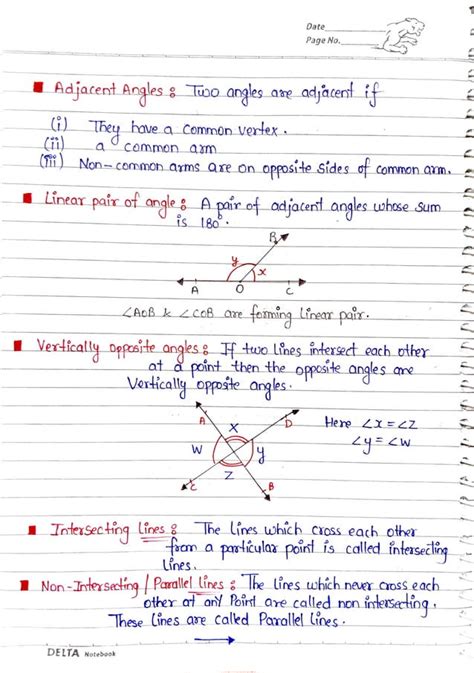 Date
Page No.
Adjacent Angles : Two angles are adjacent if
(i) They have a common vertex.
(ii) a common arm
(iii) Non-common arms are on opposite sides of common arm.
Linear pair of angle : A pair of adjacent angles whose sum
is 180°.
B
y
x
A O C
∠AOB & ∠COB are forming linear pair.
Vertically opposite angles : If two lines intersect each other
at a point then the opposite angles are
Vertically opposite angles.
A D
X
W y
Z
C B
Here ∠x = ∠z
∠y = ∠w
Intersecting lines : The lines which cross each other
from a particular point is called intersecting
lines.
Non-Intersecting / Parallel lines : The lines which never cross each
other at any Point are called non intersecting.
These lines are called Parallel lines.
DELTA Notebook